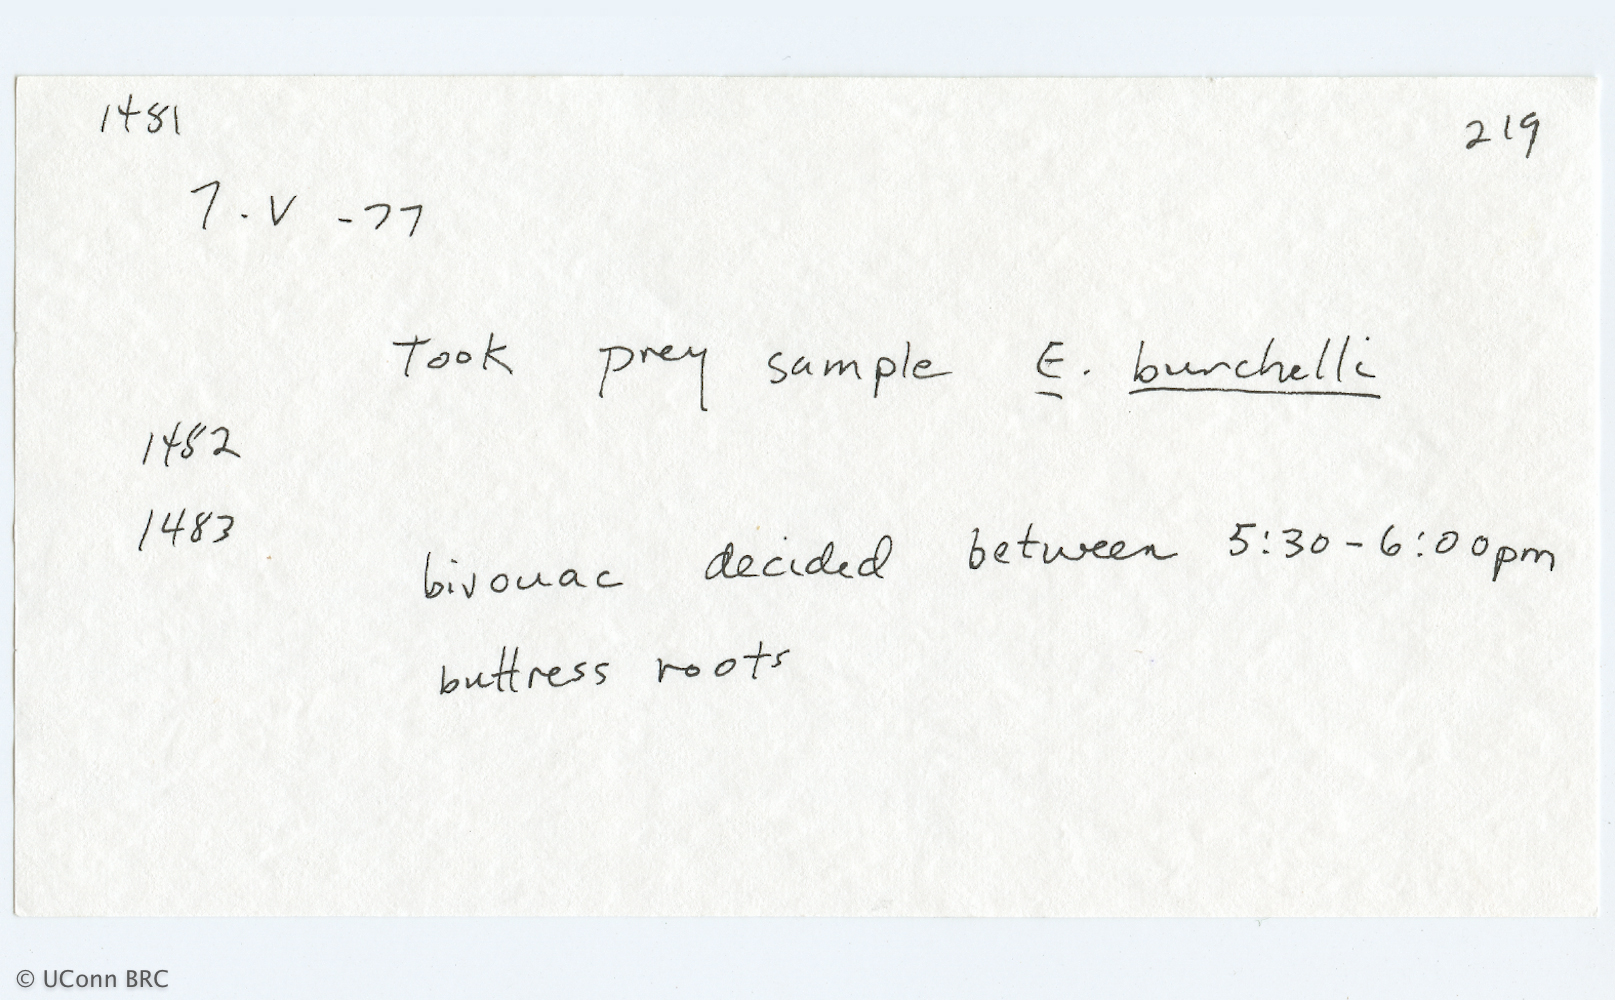 1481
219
7.V-77
Took prey sample E. burchelli
1482
1483
bivouac decided between 5:30-6:00pm
buttress roots
© UConn BRC